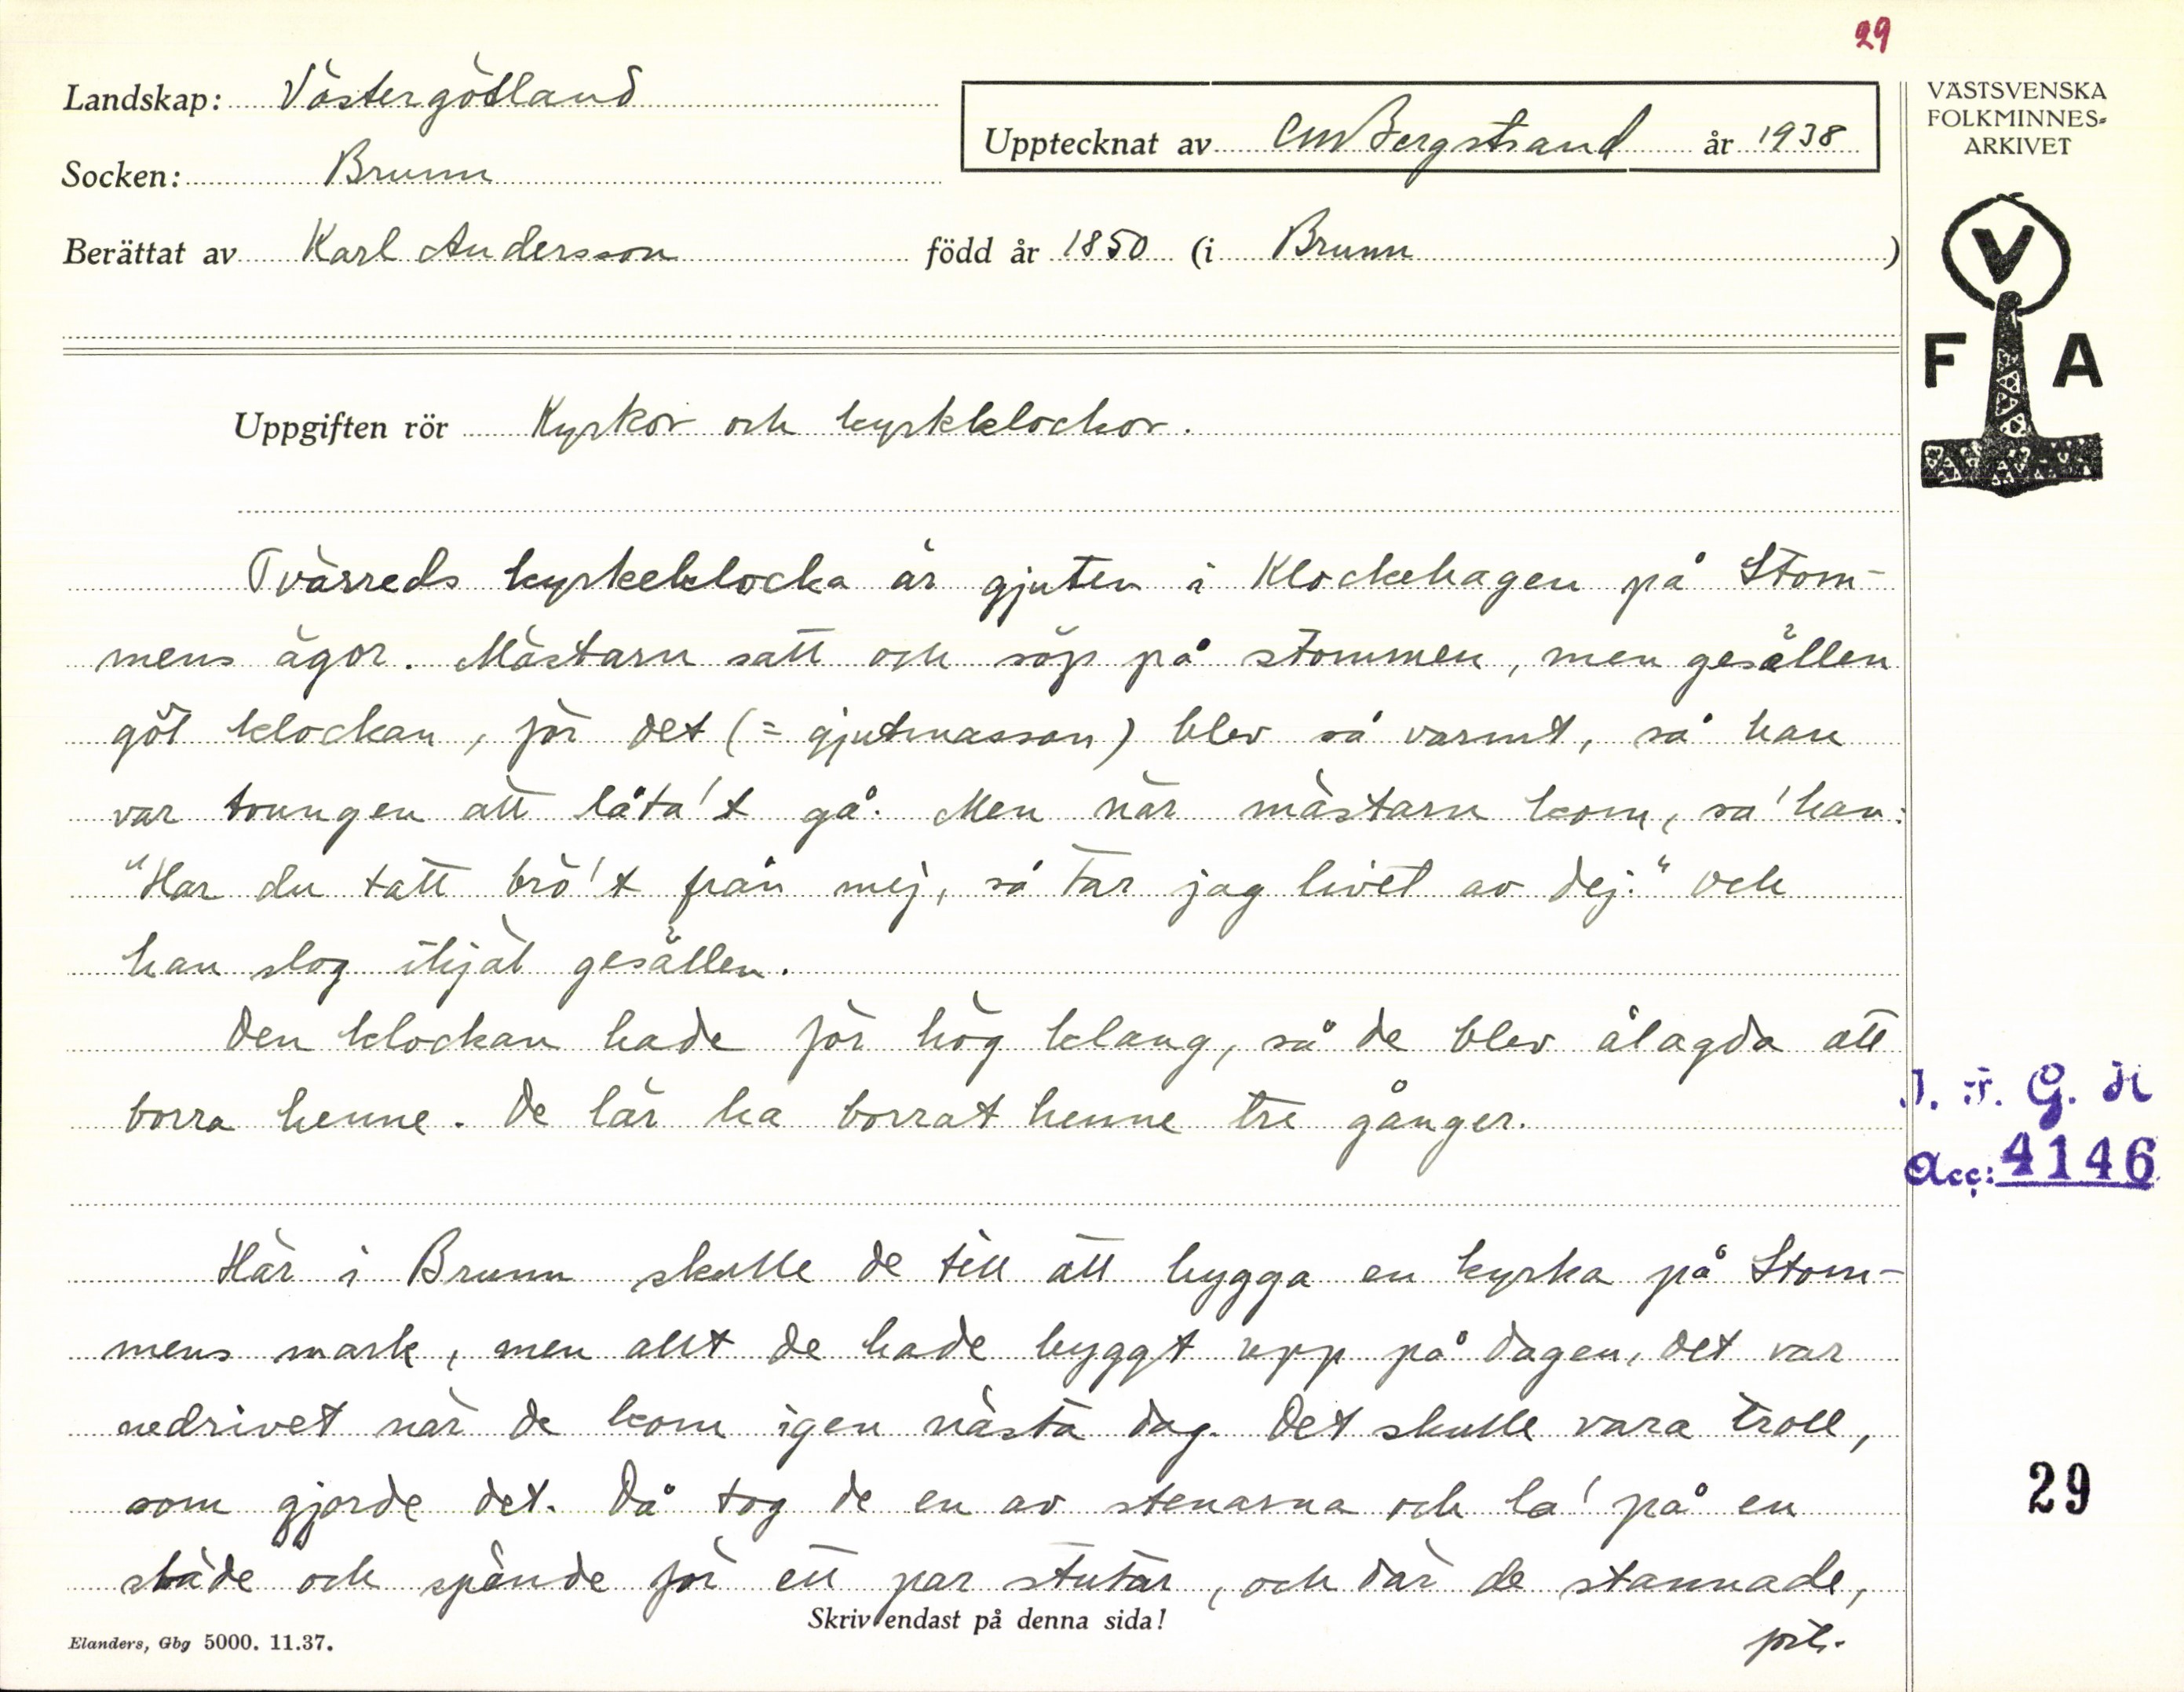 29
Landskap: Västergötland
Upptecknat av CM Bergstrand år 1938
Socken: Brunn
Berättat av Karl Andersson född år 1850 (i Brunn)
VÄSTSVENSKA
FOLKMINNES-
ARKIVET
V
F A
Uppgiften rör Kyrkor och kyrkklockor.
Tvärreds kyrkeklocka är gjuten i Klockehagen på Stom-
mens ägor. Mästarn satt och söp på stommen, men gesällen
göt klockan, för det (= gjutmassan) blev så varmt, så han
var tvungen att låta't gå. Men när mästarn kom, sa' han:
"Har du tatt brö't från mej, så tar jag livet av dej." Och
han slog ihjäl gesällen.
Den klockan hade för hög klang, så de blev ålagda att
borra henne. De lär ha borrat henne tre gånger.
J. F. G. H
Acc: 4146
Här i Brunn skulle de till att bygga en kyrka på Stom-
mens mark, men allt de hade byggt upp på dagen, det var
nedrivet när de kom igen nästa dag. Det skulle vara troll,
som gjorde det. Då tog de en av stenarna och la' på en
släde och spände för ett par stutar, och där de stannade,
29
Skriv endast på denna sida!
forts.
Elanders, Gbg 5000. 11.37.